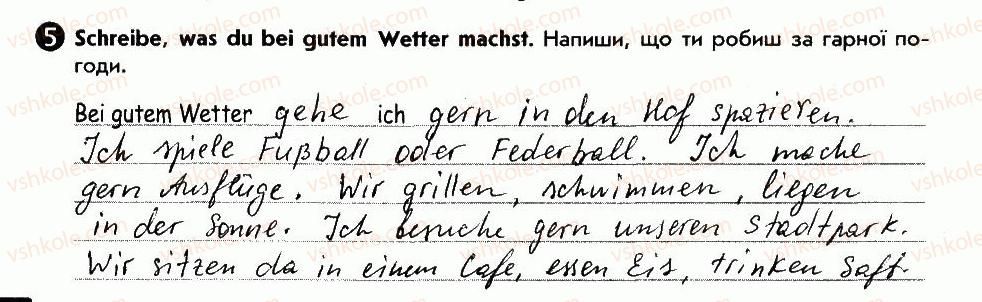 5 Schreibe, was du bei gutem Wetter machst. Напиши, що ти робиш за гарної по-
годи.
Bei gutem Wetter gehe ich gern in den Hof spazieren.
Ich spiele Fußball oder Federball. Ich mache
gern Ausflüge. Wir grillen, schwimmen, liegen
in der Sonne. Ich besuche gern unseren Stadtpark.
Wir sitzen da in einem Cafe, essen Eis, trinken Saft.